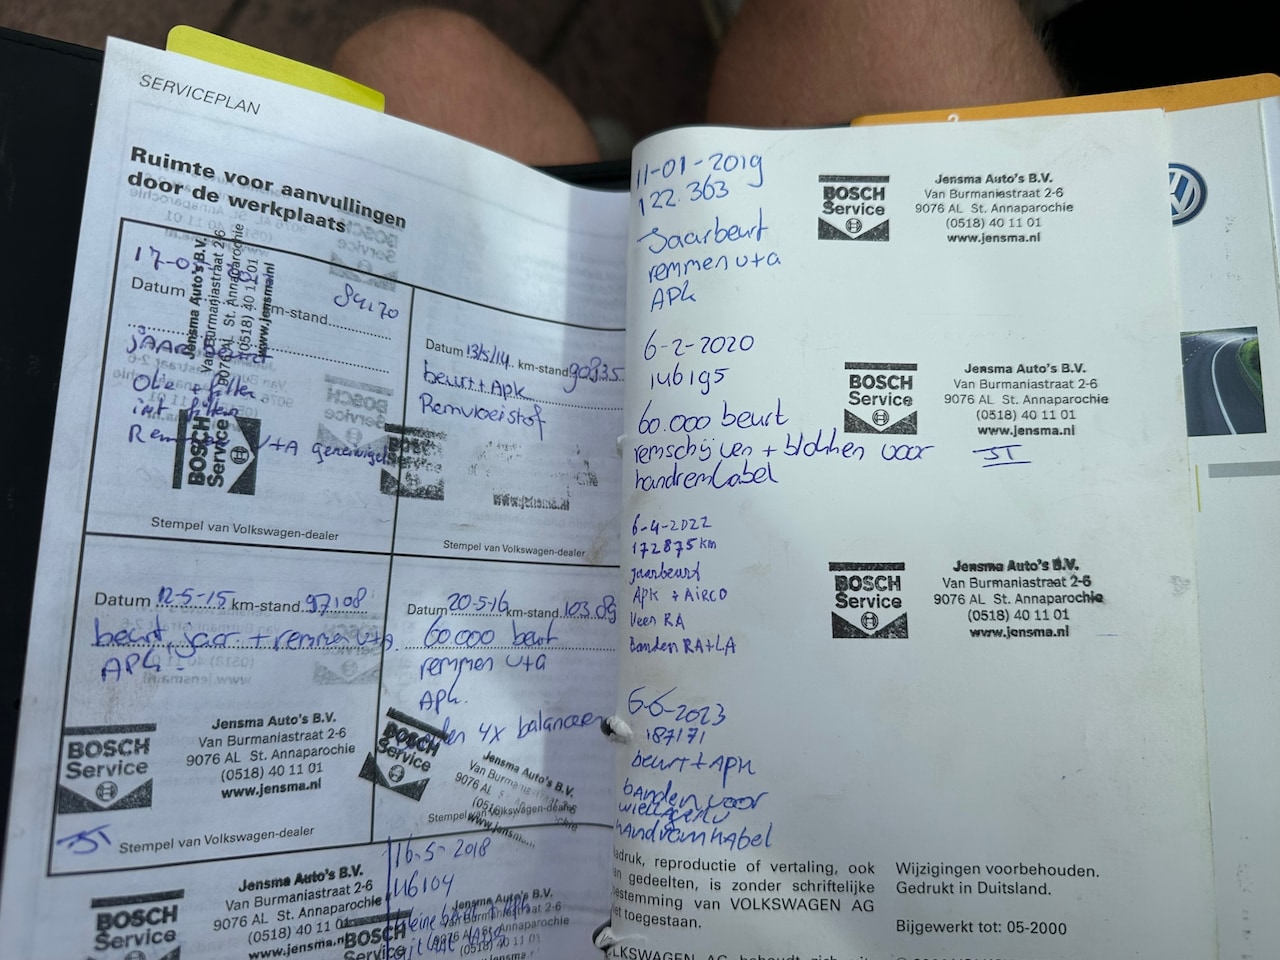 SERVICEPLAN
Ruimte voor aanvullingen
door de werkplaats
Datum km-stand
Olie + filter
int filter
V+A gereinigd
BOSCH
Service
Jensma Auto's B.V.
Van Burmaniastraat 2-6
9076 AL St. Annaparochie
(0518) 40 11 01
www.jensma.nl
Stempel van Volkswagen-dealer
Datum 13/5/14 km-stand 90835
beurt + Apk
Remvloeistof
Stempel van Volkswagen-dealer
Datum 12-5-15 km-stand 97108
beurt jaar + remmen v+a
APK
BOSCH
Service
Jensma Auto's B.V.
Van Burmaniastraat 2-6
9076 AL St. Annaparochie
(0518) 40 11 01
www.jensma.nl
Stempel van Volkswagen-dealer
Datum 20-5-16 km-stand 103.089
60.000 beurt
remmen v+a
APK.
4x balanceren
BOSCH
Service
Jensma Auto's B.V.
Stempel van Volkswagen-dealer
BOSCH
Service
Jensma Auto's B.V.
Van Burmaniastraat 2-6
9076 AL St. Annaparochie
(0518) 40 11 01
www.jensma.nl
16-5-2018
BOSCH
11-01-2019
122.363
Jaarbeurt
remmen v+a
APK
BOSCH
Service
Jensma Auto's B.V.
Van Burmaniastraat 2-6
9076 AL St. Annaparochie
(0518) 40 11 01
www.jensma.nl
6-2-2020
146195
60.000 beurt
remschijven + blokken voor
handremkabel
BOSCH
Service
Jensma Auto's B.V.
Van Burmaniastraat 2-6
9076 AL St. Annaparochie
(0518) 40 11 01
www.jensma.nl
6-4-2022
172875 km
jaarbeurt
APK + AIRCO
Veer RA
banden RA+LA
BOSCH
Service
Jensma Auto's B.V.
Van Burmaniastraat 2-6
9076 AL St. Annaparochie
(0518) 40 11 01
www.jensma.nl
6-6-2023
187171
beurt + APK
banden voor
wiellager
handremkabel
reproductie of vertaling, ook
gedeelten, is zonder schriftelijke
van VOLKSWAGEN AG
toegestaan.
Wijzigingen voorbehouden.
Gedrukt in Duitsland.
Bijgewerkt tot: 05-2000